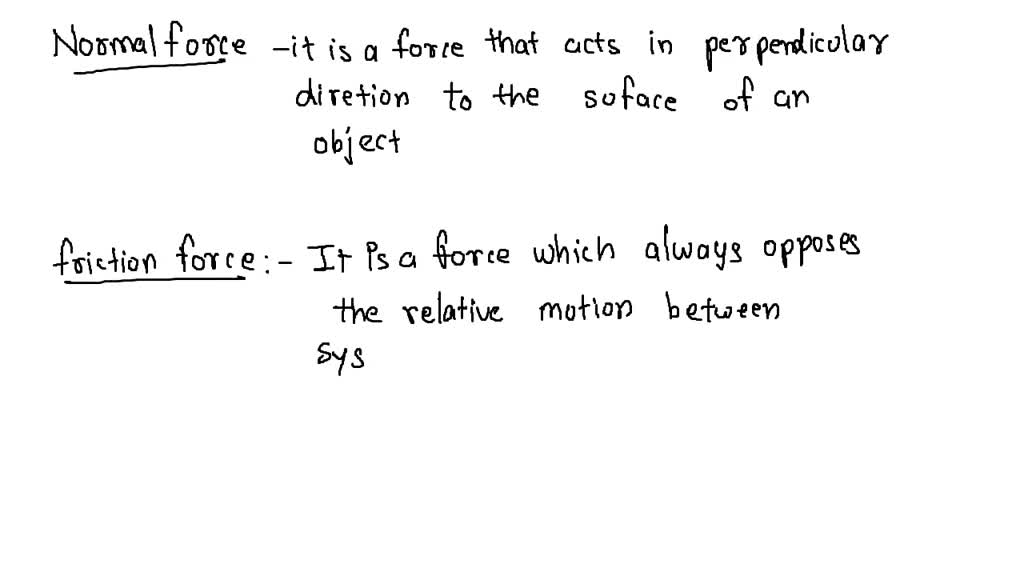 Normal force - it is a force that acts in perpendicular
diretion to the soface of an
object
friction force :- It is a force which always opposes
the relative motion between
sys